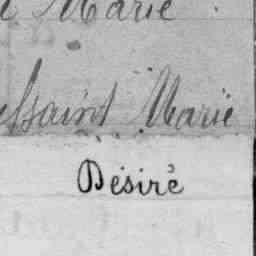 Marie
ssaint Marie
Désiré